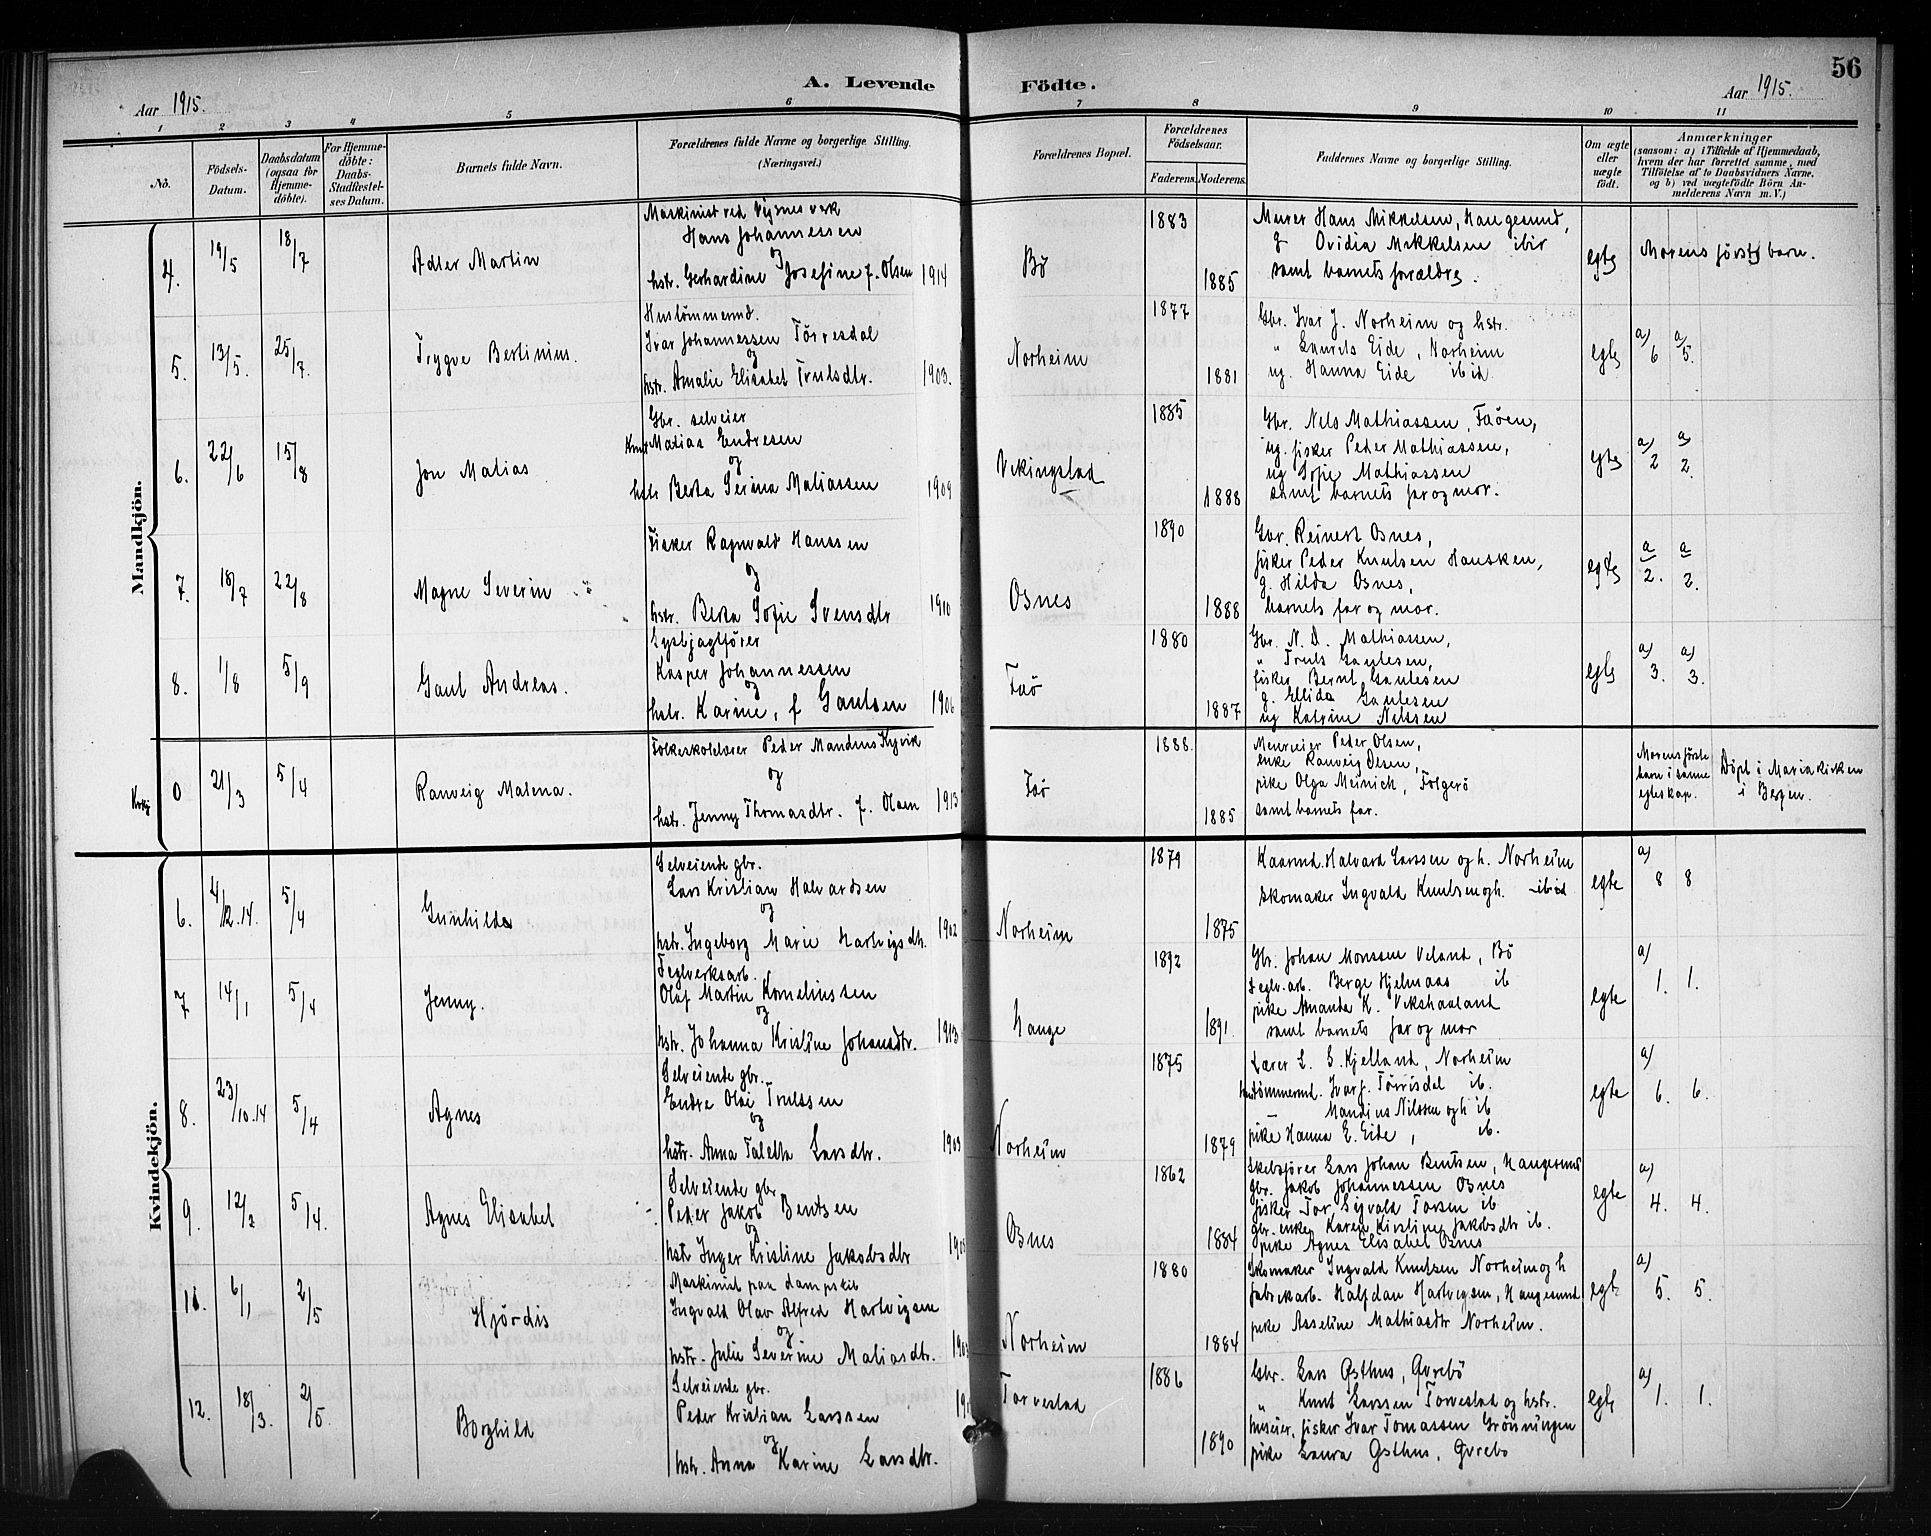 56
A. Levende Födte.
Aar 1915.
Aar 1915.
1 2 3 4 5 6 7 8 9 10 11
No.
Födsels-Datum.
Daabsdatum (ogsaa for Hjemme-döbte).
For Hjemme-döbte: Daabs-Stadfæstel-ses Datum.
Barnets fulde Navn.
Forældrenes fulde Navne og borgerlige Stilling.
(Næringsvei.)
Forældrenes Bopæl.
Forældrenes Födselsaar.
Faderens. Moderens.
Faddernes Navne og borgerlige Stilling.
Om ægte eller uægte födt.
Anmærkninger
(saasom: a) i Tilfælde af Hjemmedaab, hvem der har forrettet samme, med Tilföielse af to Daabsvidners Navne, og b) ved uægtefödte Börn Anmelderens Navn m. V.)
Mandkjön.
4. 19/5 18/7 Adler Martin
Maskinist ved Vigsnes verk
Hans Johannessen
og
hstr. Gerhardine Josefine f. Olsen 1914
Bö 1883 1885
Murer Hans Mikkelsen, Haugesund,
g Ovidia Mikkelsen ibid
samt barnets forældre.
egte
Morens förste barn.
5. 13/5. 25/7. Trygve Bertinius.
Hustömmermd.
Ivar Johannessen Törresdal
og
hstr. Amalie Elisabet Trulsdtr. 1903.
Norheim 1877 1881
Gbr. Ivar J. Norheim og hstr.
" Laurits Eide, Norheim
ug. Hanna Eide ibid
egte a) 6 a) 5.
6. 22/6 15/8 Jon Matias
Gbr. selveier
Knut Matias Endresen
og
hstr Berta Serina Matiassen 1909
Vikingstad 1885 1888
Gbr. Nels Mathiassen, Faöen,
ug. fisker Peder Mathiassen,
ug Sofie Mathiassen
samt barnets far og mor.
egte a) 2 a) 2
7. 18/7 22/8 Magne Severin
Fisker Ragnvald Hanssen
og
hstr. Berta Sofie Svensdtr 1910
Osnes 1890 1888
Gbr. Reinert Osnes,
fisker Peder Knutsen Hausken,
g. Hilda Osnes,
barnets far og mor.
egte a 2. a 2.
8. 1/8 5/9 Gaut Andreas.
Lystjagtförer
Kasper Johannessen
og
hstr. Karine, f Gautsen 1906
Faö 1880 1887
Gbr. N. D. Mathiassen,
" Truls Gautesen,
fisker Bernt Gautesen
g. Ellida Gautesen
ug Katrine Nilssen
egte a) 3. a) 3.
0 21/3 5/4 Ranveig Malena.
Folkeskolelærer Peder Mandius Kyvik
og
hstr. Jenny Thomasdtr. f. Olsen 1913
Faö 1888. 1885
Peder Olsen,
enke Ranveig Olsen,
pike Olga Meinich, Folgerö
samt barnets far.
Morens förste barn i samme egteskap.
Döpt i Mariakirken i Bergen.
Kvindekjön.
6. 4/12.14. 5/4 Gunhilda
Selveiende gbr.
Lars Kristian Halvardsen
og
hstr. Ingeborg Marie Hartvigsdtr. 1902
Norheim 1879 1875
Kaarmd. Halvard Larssen og h. Norheim
Skomaker Ingvald Knutsen og h. ibid
egte a) 8 8
7 14/1 5/4 Jenny.
Teglverksarb.
Olaf Martin Korneliussen
og
hstr. Johanna Kristine Johansdtr. 1913
Hauge 1892 1891.
Gbr. Johan Monssen Veland, Bö
Teglv.arb. Berge Hjelmaas ib
pike Amanda K. Vikshaaland
samt barnets far og mor
egte a) 1. 1.
8. 23/10.14 5/4 Agnes
Selveiende gbr.
Endre Olai Trulssen
og
hstr. Anna Taletta Larsdtr. 1903
Norheim 1875 1879
Lærer L. S. Kjelland, Norheim
Hustömmermd. Ivar J. Törrisdal ib.
Mandius Nilssen og h ib
pike Hanna E. Eide, ib.
egte a) 6. 6.
9. 12/2 5/4. Agnes Elisabet
Selveiende gbr.
Peder Jakob Bentsen
og
hstr Inger Kristine Jakobsdtr
Osnes 1862 1884
Skibsförer Lars Johan Bentsen, Haugesund
gbr. Jakob Johannessen Osnes
fisker Tor Sigvald Torsen ib
gbr. enke Karen Kirstine Jakobsdtr ib.
pike Agnes Elisabet Osnes
egte a) 4. 4.
11. 6/1 2/5 Hjördis
Maskinist paa dampskib
Ingvald Olav Alfred Hartvigsen
og
hstr. Julie Severine Matiasdtr.
Norheim 1880 1884
Skomaker Ingvald Knutsen Norheim og h
fabrikarb. Halfdan Hartvigsen, Haugesund
pike Asseline Mathiasdtr Norheim.
egte a) 5. 5.
12. 18/3. 2/5. Borghild
Selveiende gbr.
Peder Kristian Larssen
og
hstr. Anna Karine Larsdtr.
Torvestad 1886 1890
Gbr. Lars Østhus, Gvrebö
" Knut Larssen Torvestad og hstr.
huseier, fisker Ivar Tomassen Grönningen
pike Laura Østhus, Gvrebö
egte a) 1. 1.